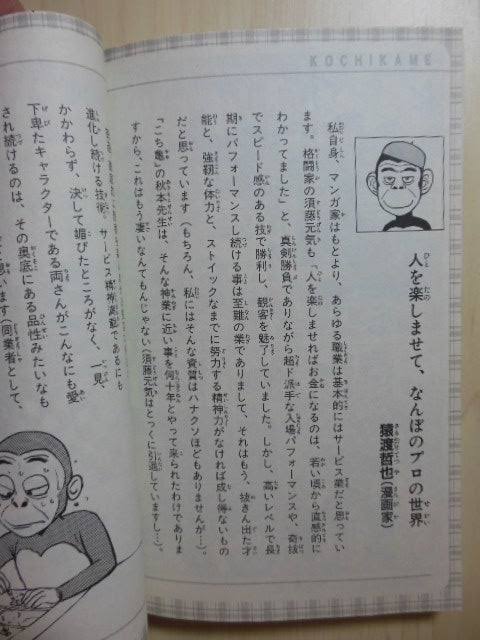 KOCHIKAME
人を楽しませて、なんぼのプロの世界
猿渡哲也(漫画家)
私自身、マンガ家はもとより、あらゆる職業は基本的にはサービス業だと思ってい
ます。格闘家の須藤元気も「人を楽しませればお金になるのは、若い頃から直感的に
わかってました」と、真剣勝負でありながら超ド派手な入場パフォーマンスや、奇抜
でスピード感のある技で勝利し、観客を魅了していました。しかし、高いレベルで長
期にパフォーマンスし続ける事は至難の業でありまして、それはもう、抜きん出た才
能と、強靭な体力と、ストイックなまでに努力する精神力がなければ成し得ないもの
だと思っています(もちろん、私にはそんな資質はハナクソほどもありませんが…)。
「こち亀」の秋本先生は、そんな神業に近い事を何十年とやって来られたわけでありま
すから、これはもう凄いなんてもんじゃない(須藤元気はとっくに引退していますし…)。
進化し続ける技術、サービス精神満載であるにも
かかわらず、決して媚びたところがなく、一見、
下卑たキャラクターである両さんがこんなにも愛
され続けるのは、その奥底にある品性みたいなも
思います(同業者として、